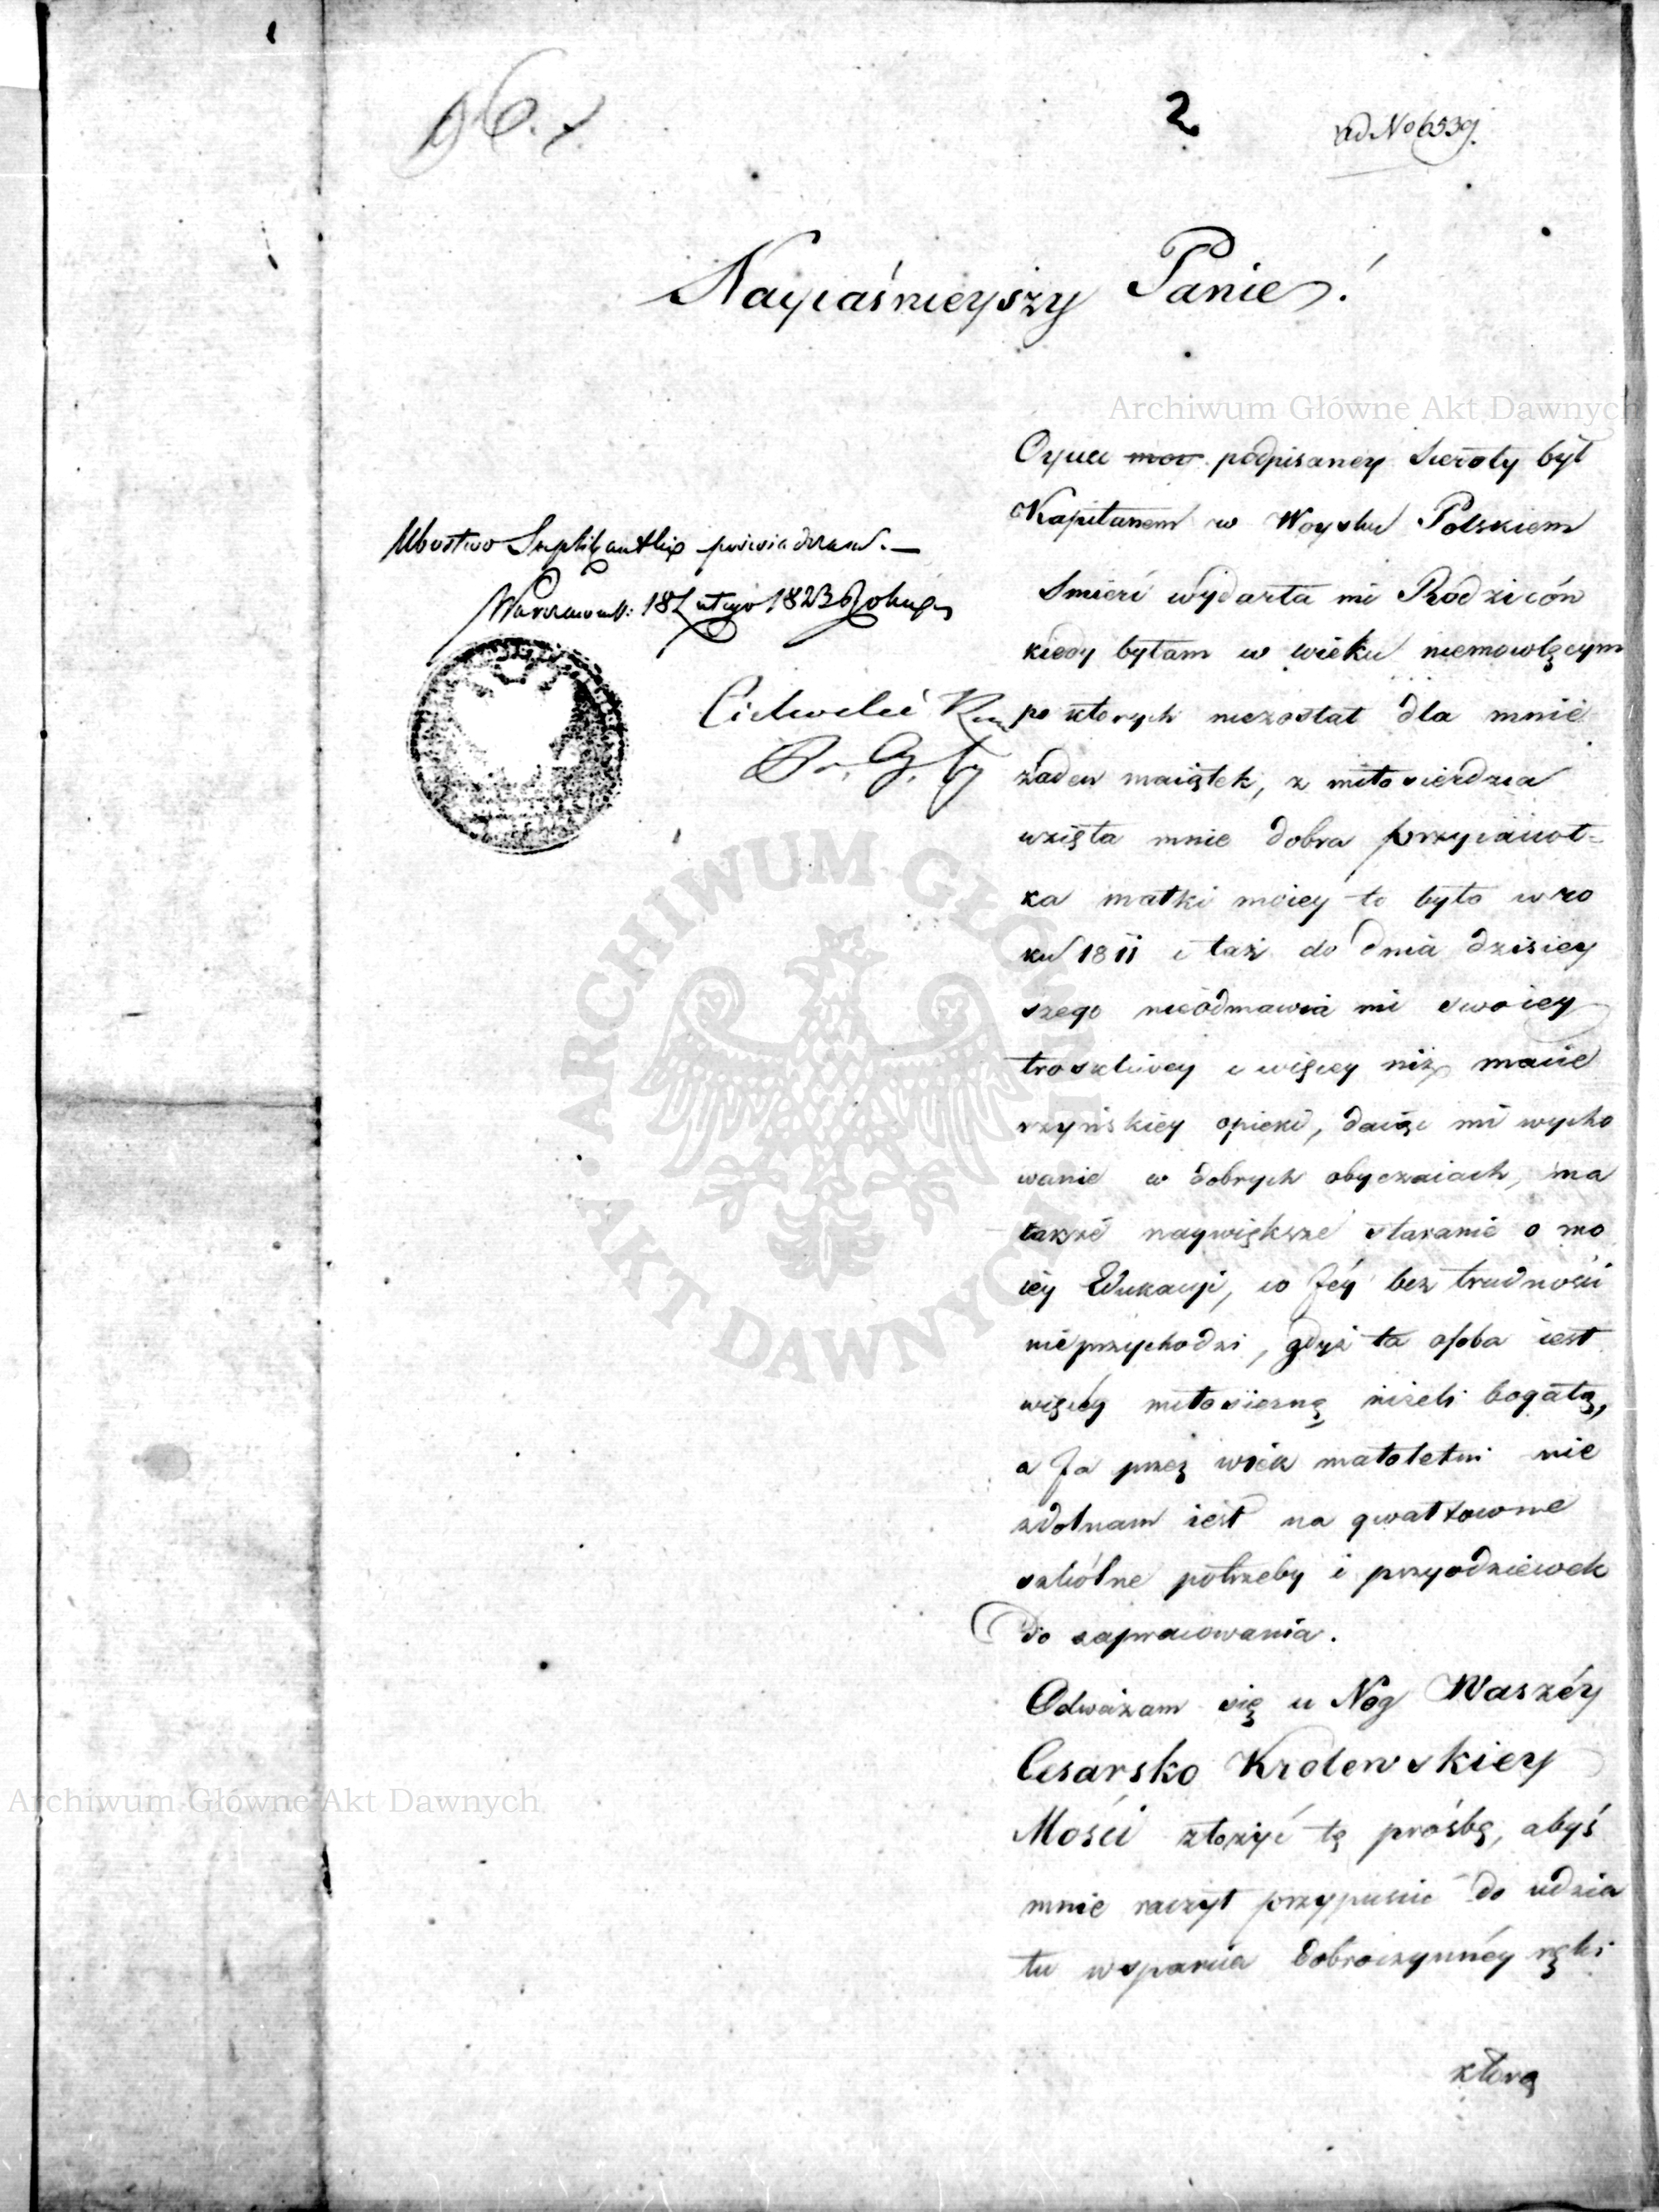 2
ad No 6539.
Nayiaśnieyszy Panie!
Archiwum Główne Akt Dawnych
Oyciec podpisaney Sieroty był
Kapitanem w Woysku Polskiem
Smierć wydarła mi Rodziców
kiedy byłam w wieku niemowlęcym
po ktorych niezostał dla mnie
żaden maiątek, z miłosierdzia
wzięła mnie dobra przyiaciół-
ka matki moiey to było w ro
ku 1811 i taż do dnia dzisiey
szego nieodmawia mi swoiey
troskliwey i więcey niż macie
rzyńskiey opieki, daiąc mi wycho
wanie w dobrych obyczaiach, ma
także naywiększe staranie o mo
iey Edukacyi, co Jéy bez trudności
nieprzychodzi, gdyż ta osoba iest
więcey miłosierną niżeli bogatą,
a Ja przez wiek małoletni nie
zdolnam iest na gwałtowne
szkólne potrzeby i przyodziewek
do zapracowania.
Odważam się u Nog Waszéy
Cesarsko Krolewskiey
Mości złożyć tę prośbę, abyś
mnie raczył przypuścić do udzia
łu wsparcia dobroczynnéy ręki
którą
Ubostwo Suplikantki poświadczam. —
Warszawa d: 18 Lutego 1823 Roku
ARCHIWUM GŁÓWNE
AKT DAWNYCH
Archiwum Główne Akt Dawnych